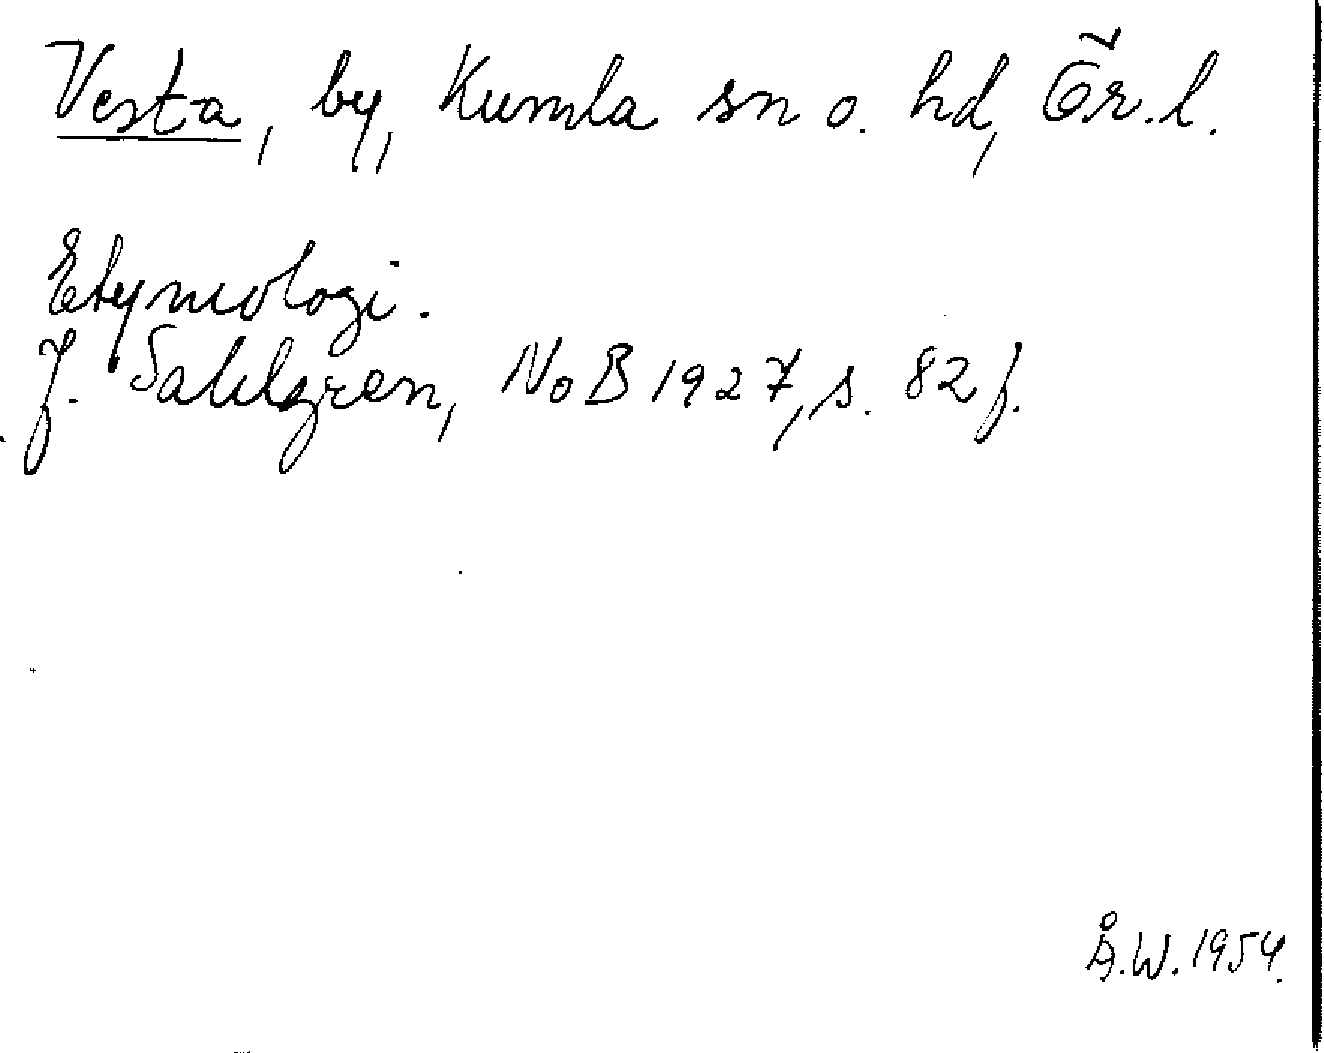 Vesta, by, Kumla sn o. hd, Ör.l.
Etymologi.
J. Sahlgren, NoB 1927, s. 82 f.
Å.W. 1954.